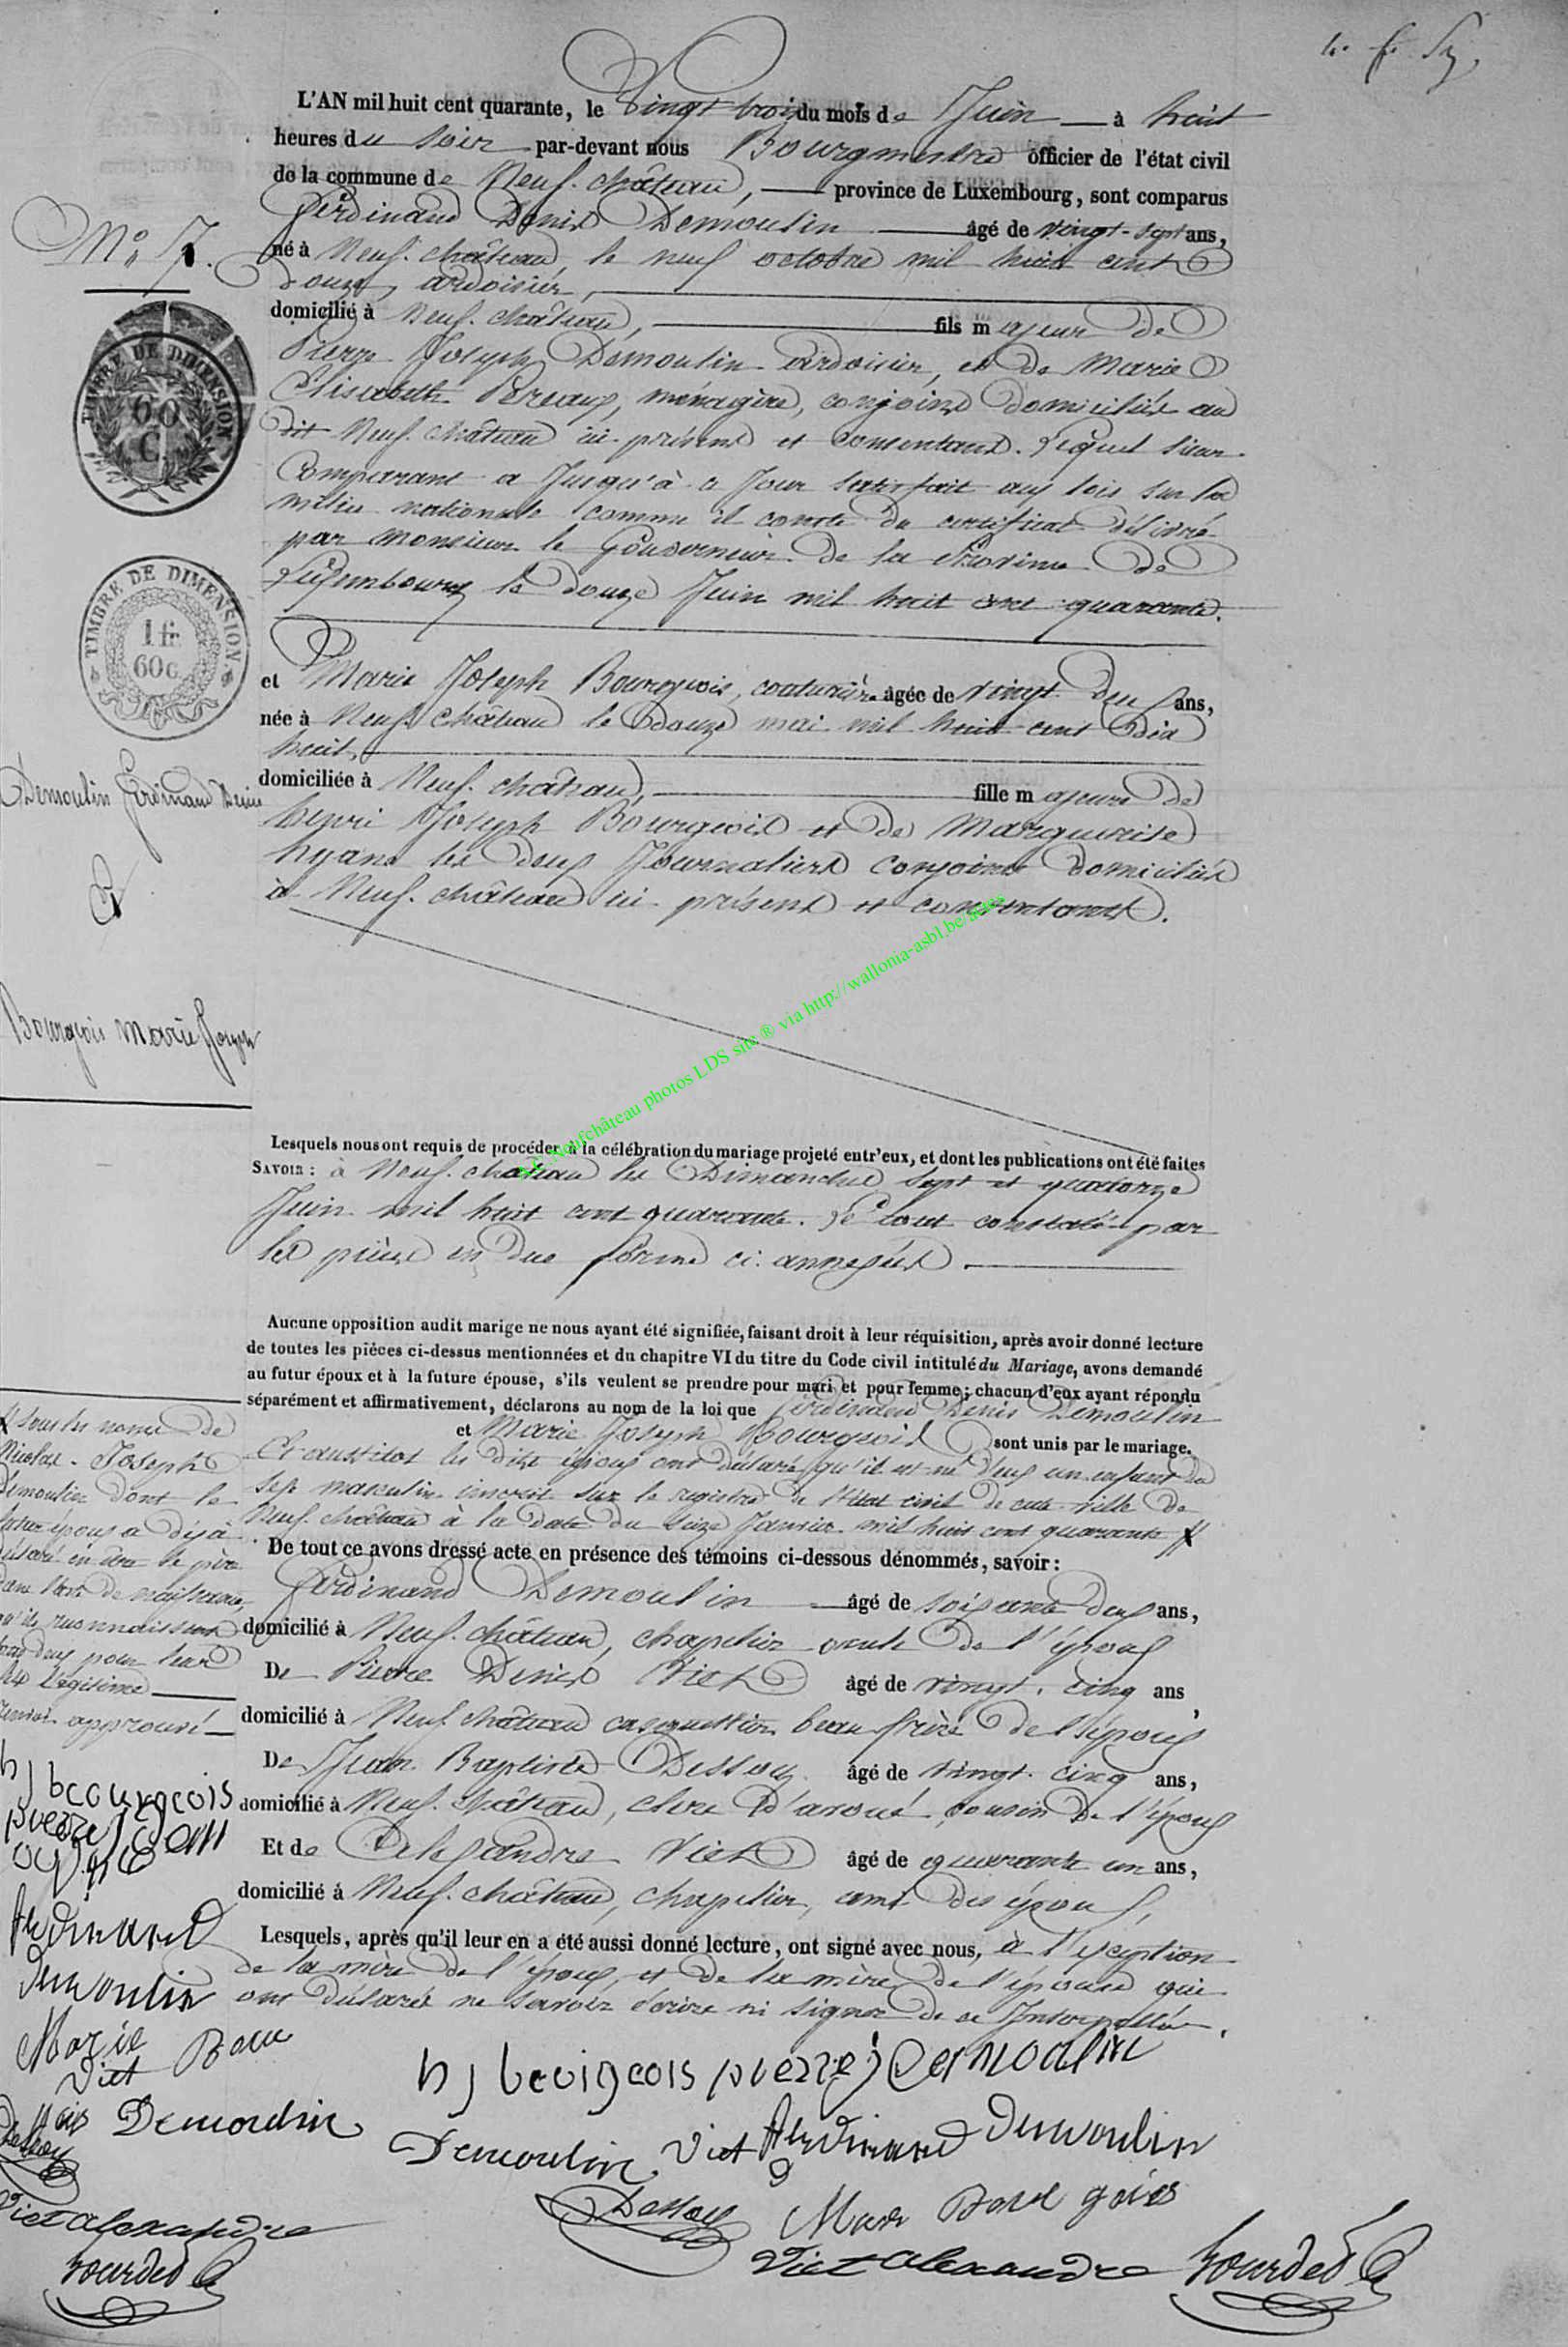 L'AN mil huit cent quarante, le Vingt trois du mois de Juin à huit
heures du soir par-devant nous Bourgmestre officier de l'état civil
de la commune de Neuf-château, province de Luxembourg, sont comparus
Ferdinand Denis Demoulin âgé de vingt-sept ans,
N° 7.
né à Neuf-château, le neuf octobre mil huit cent
douze, ardoisier,
domicilié à Neuf-château, fils majeur de
Pierre Joseph Demoulin ardoisier, et de Marie
Elisabeth Pereaux, ménagère, conjoins domiciliés au
dit Neuf-château ici présens et consentans. Lequel sieur
Comparant a jusqu'à ce jour satisfait aux lois sur la
milice nationale comme il conste du certificat délivré
par Monsieur le Gouverneur de la Province de
Luxembourg le douze Juin mil huit cent quarante.
TIMBRE DE DIMENSION
60
C.
TIMBRE DE DIMENSION
1 fr
60 c
et Marie Joseph Bourgeois, couturière âgée de vingt deux ans,
née à Neuf-château le douze mai mil huit cent dix
huit,
domiciliée à Neuf-château, fille majeure de
Demoulin Ferdinand Denis
&
Bourgeois Marie Joseph
henri Joseph Bourgeois et de Marguerite
hyans les deux Journaliers conjoins domiciliés
à Neuf-château ici présens et consentans.
Neufchâteau photos LDS site ® via http://wallonia-asbl.be/actes
Lesquels nous ont requis de procéder à la célébration du mariage projeté entr'eux, et dont les publications ont été faites
SAVOIR : à Neuf-château les Dimanches sept et quatorze
Juin mil huit cent quarante. Le tout constaté par
les pièces en due forme ci-annexées.
Aucune opposition audit marige ne nous ayant été signifiée, faisant droit à leur réquisition, après avoir donné lecture
de toutes les pièces ci-dessus mentionnées et du chapitre VI du titre du Code civil intitulé du Mariage, avons demandé
au futur époux et à la future épouse, s'ils veulent se prendre pour mari et pour femme ; chacun d'eux ayant répondu
séparément et affirmativement, déclarons au nom de la loi que Ferdinand Denis Demoulin
et Marie Joseph Bourgeois sont unis par le mariage.
Et aussitot les dits époux ont déclaré qu'il est né d'eux un enfant du
sexe masculin inscrit sur le registre de l'état civil de cette ville de
Neuf-château à la date du seize Janvier mil huit cent quarante
sous les noms de
Nicolas-Joseph
Demoulin dont le
futur époux a déjà
déclaré en être le père
dans l'acte de naissance,
qu'ils reconnaissent
tous deux pour leur
fils légitime
Renvoi approuvé
De tout ce avons dressé acte en présence des témoins ci-dessous dénommés, savoir :
Ferdinand Demoulin âgé de soixante deux ans,
domicilié à Neuf-château, chapelier oncle de l'époux
De Pierre Denis Viet âgé de vingt-cinq ans,
domicilié à Neuf-château casquettier beau-frère de l'époux
De Jean Baptiste Dessoy âgé de vingt-cinq ans,
domicilié à Neuf-château, clerc d'avoué, cousin de l'époux
Et de Alexandre Viet âgé de quarante un ans,
domicilié à Neuf-château, chapelier, ami des époux,
Lesquels, après qu'il leur en a été aussi donné lecture, ont signé avec nous, à l'exception
de la mère de l'époux, et de la mère de l'épouse qui
ont déclaré ne savoir écrire ni signer de ce Interpellées.
h j bourgeois
pierre j dem
oulin
ferdinand
Demoulin
Marie Bour
Viet
geois Demoulin
Dessoy
Viet alexandre
hourdet
h j bourgeois pierre j demoulin
Demoulin Viet ferdinand Demoulin
Dessoy Marie Bourgeois
Viet alexandre hourdet